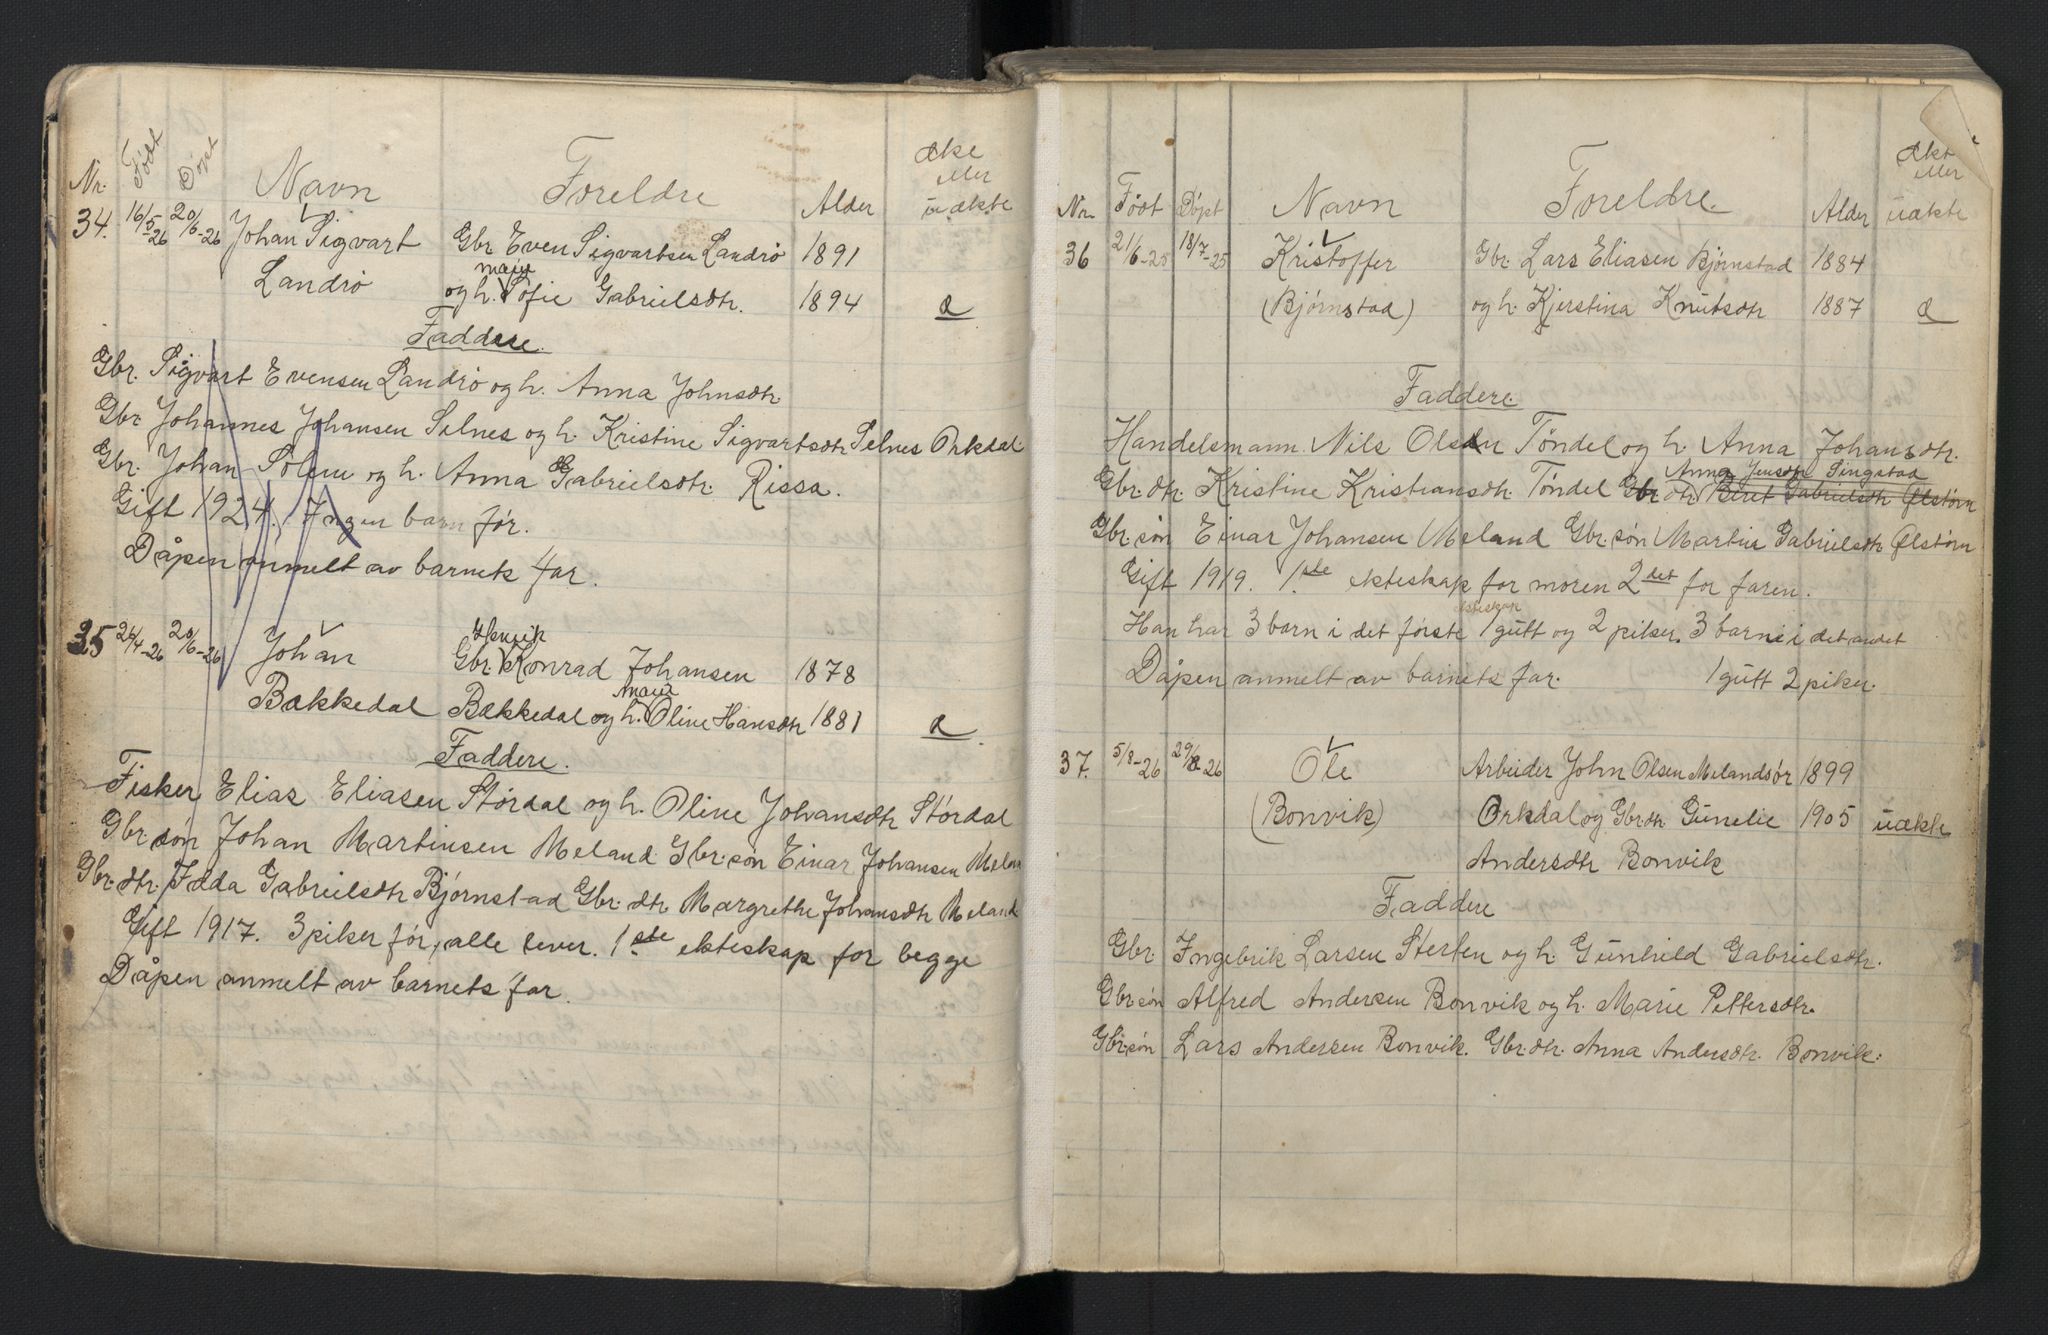 Nr. Født Døpt Navn Foreldre Alder ekte eller uækte
34. 16/5-26 20/6-26 Johan Sigvart Gbr. Even Sigvartsen Landrø 1891
Marie
Landrø og h. Sofie Gabrielsdtr. 1894 e
Faddere.
Gbr. Sigvart Evensen Landrø og h. Anna Johnsdtr.
Gbr Johannes Johansen Selnes og h. Kristine Sigvartsdtr Selnes Orkdal
Gbr. Johan Solem og h. Anna Gabrielsdtr. Rissa.
Gift 1924. Ingen barn før.
Dåpen anmelt av barnets far.
35 24/4-26 20/6-26 Johan Gbr. Henrik Konrad Johansen 1878
Marie
Bækkedal Bækkedal og h. Oline Hansdtr 1881 e
Faddere.
Fisker Elias Eliasen Størdal og h. Oline Johansdtr Størdal
Gbr.søn Johan Martinsen Meland Gbr.søn Einar Johansen Melan
Gbr.dtr. Indda Gabrielsdtr Bjørnstad Gbr.dtr. Margrethe Johansdtr Meland
Gift 1917. 3 piker før, alle lever. 1ste ekteskap for begge
Dåpen anmelt av barnets far.
Nr. Født Døpt Navn Foreldre. Alder Ekt eller uækte
36 21/6-25 18/7-25 Kristoffer Gbr. Lars Eliasen Bjørnstad 1884
(Bjørnstad) og h. Kjerstina Knutsdtr 1887 e
Faddere.
Handelsmann Nils Olsen Tøndel og h. Anna Johansdtr.
Anna Jensdtr Singstad
Gbr.dtr. Kristine Kristiansdtr. Tøndel Gbr dtr Beret Gabrielsdtr Ølstørn
Gbr.søn Einar Johansen Meland Gbr.søn Martin Gabrielsdtr Ølstørn
Gift 1919. 1.ste ekteskap for moren 2det for faren.
ekteskap
Han har 3 barn i det første 1 gutt og 2 piker. 3 barn i det andet
Dåpen anmelt av barnets far. 1 gutt 2 piker.
37. 5/8-26 29/8 26 Ole Arbeider John Olsen Melandsør 1899
(Bonvik) Orkdal og Gbr.dtr. Gunelie 1905 uækte
Andersdtr Bonvik
Faddere
Gbr. Ingebrik Larsen Sterten og h. Gunhild Gabrielsdtr.
Gbr.søn Alfred Andersen Bonvik og h. Marie Pettersdtr.
Gbr.søn Lars Andersen Bonvik. Gbr.dtr. Anna Andersdtr. Bonvik.